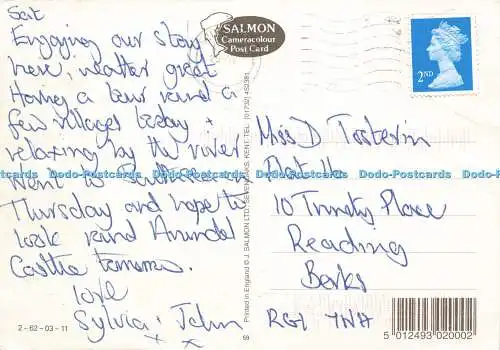 Sat
Enjoying our stay
here, weather great
Having a tour round a
few villages today +
relaxing by the river
Went to Southsea on
Thursday and hope to
look round Arundel
Castle tomorrow.
love
Sylvia + John
x x
SALMON
Cameracolour
Post Card
2ND
Printed in England © J. SALMON LTD., SEVENOAKS, KENT. TEL: (01732) 452381
Miss D
10 Trinity Place
Reading
Berks
RG1
2-62-03-11
5 012493 020002
Dodo-Postcards Dodo-Postcards Dodo-Postcards Dodo-Postcards Dodo-Postcards